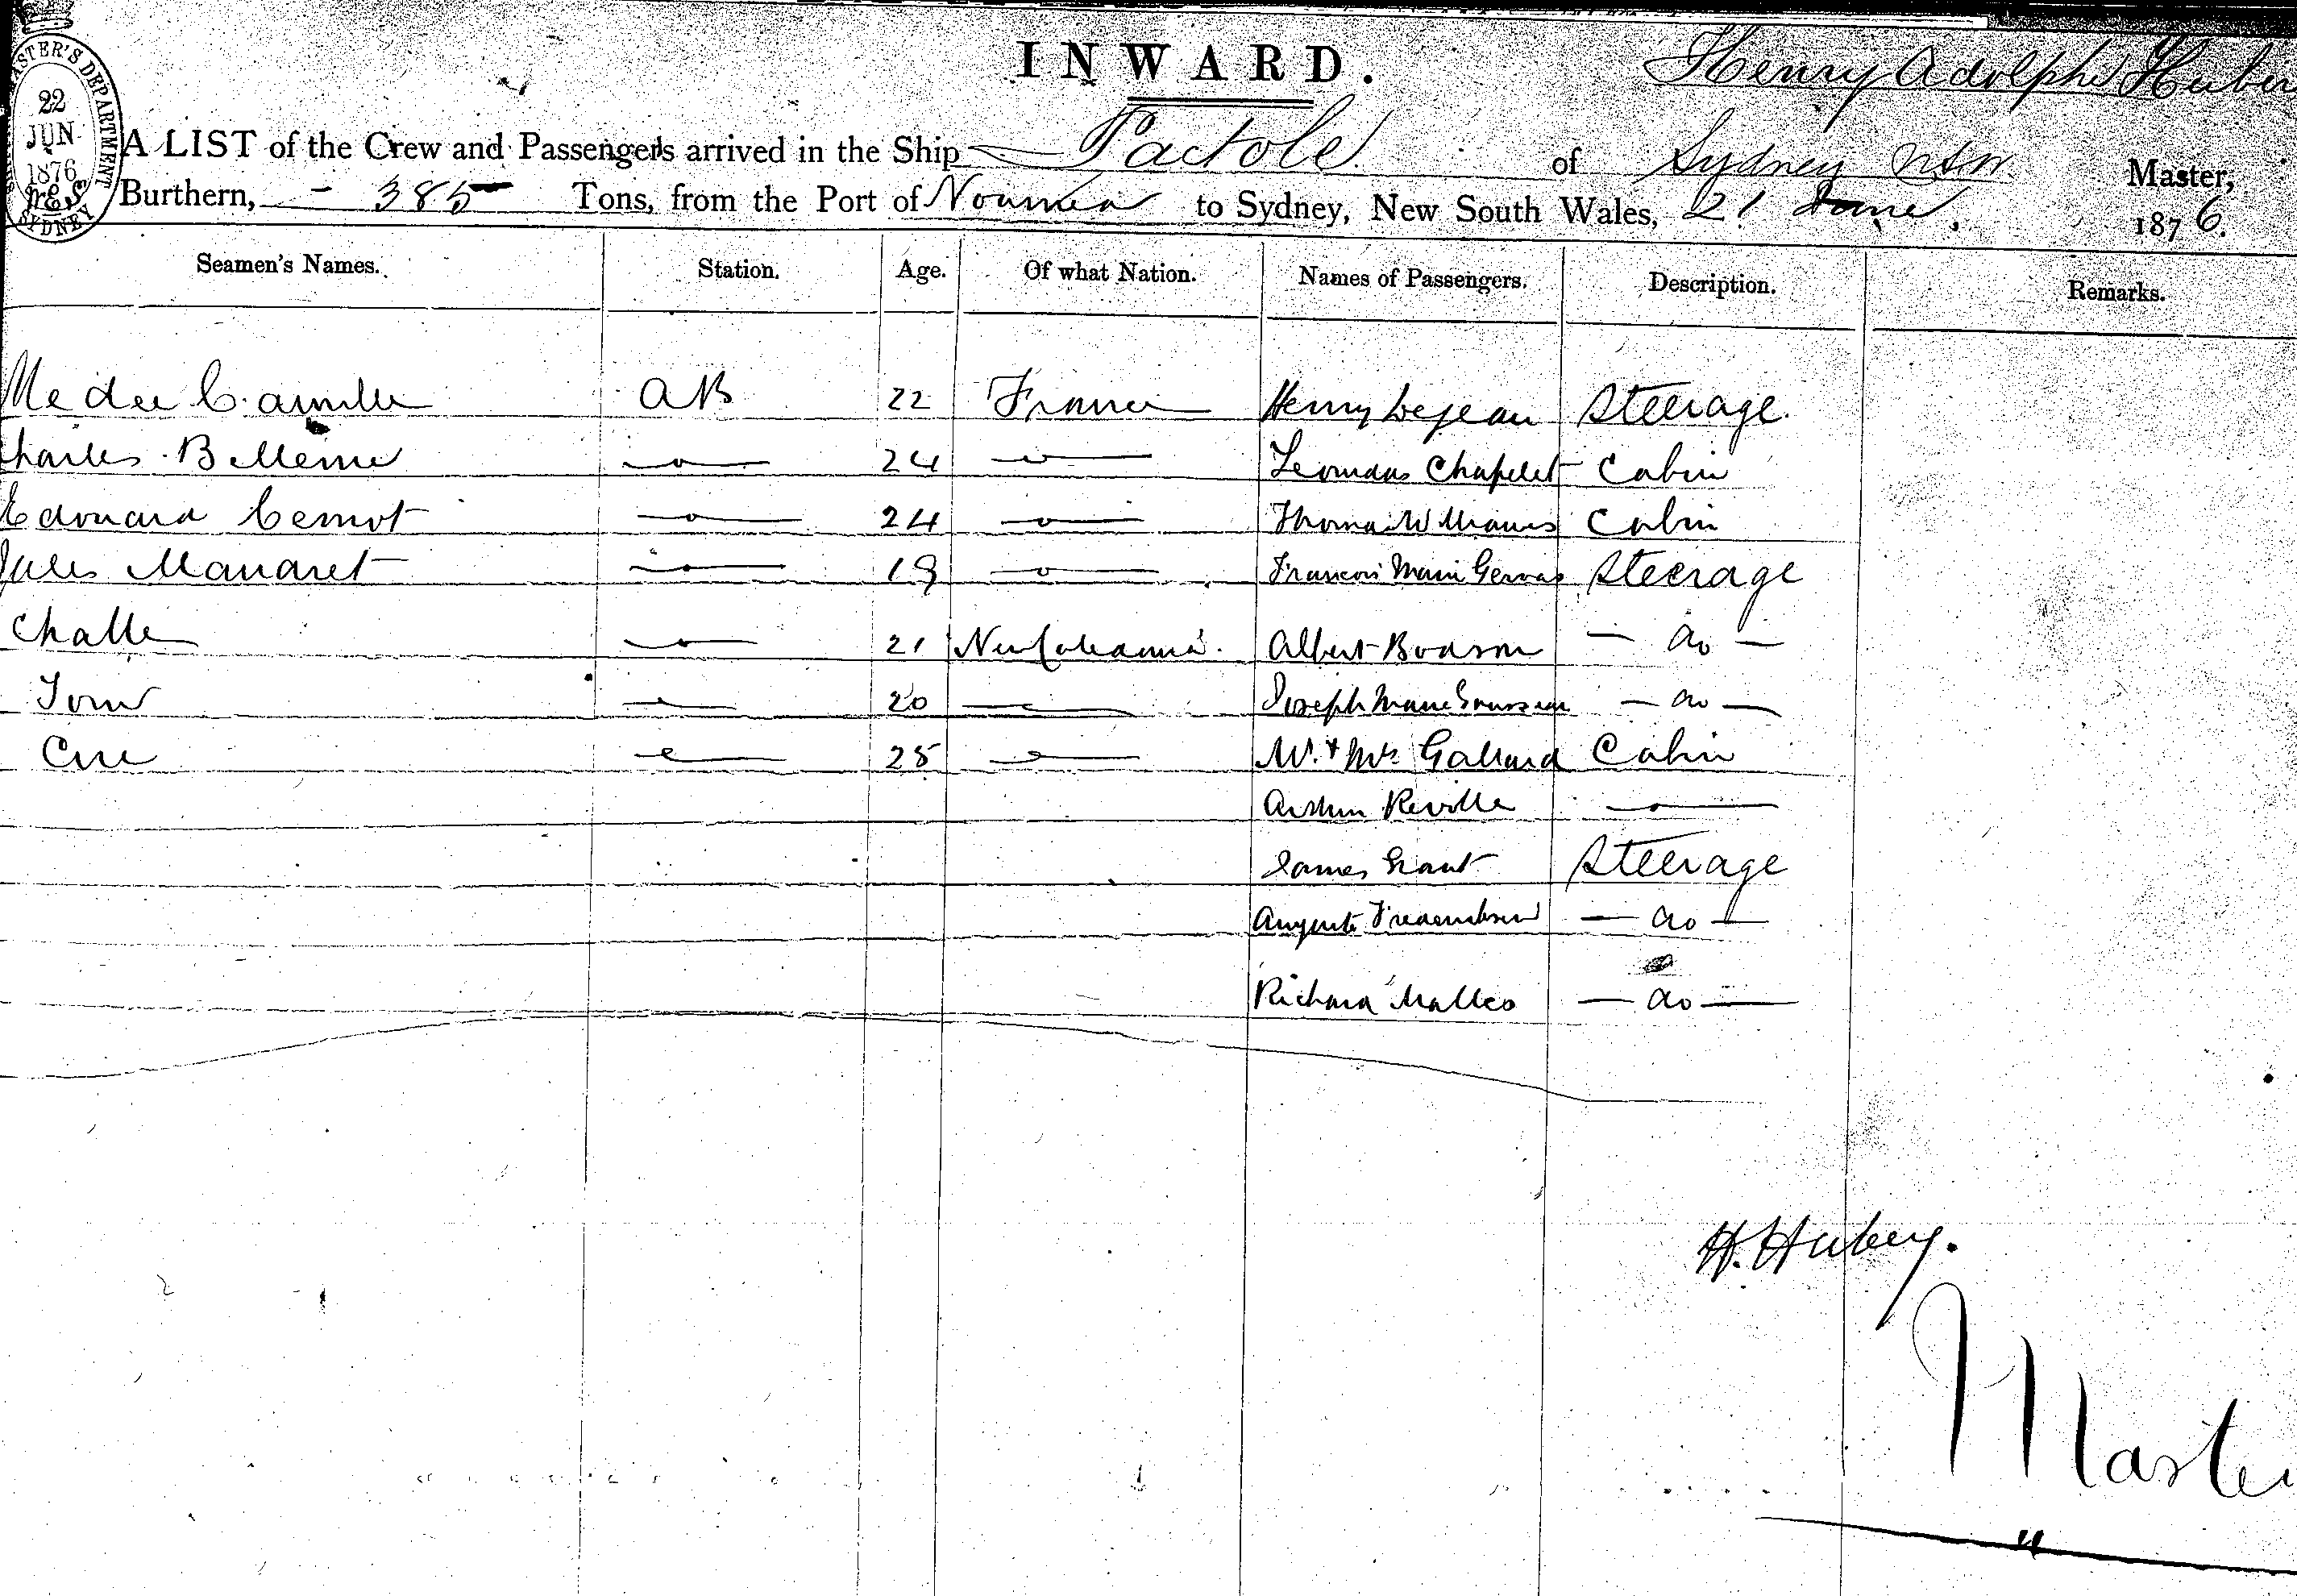 INWARD.
Henry Adolphe Huber
MASTER'S DEPARTMENT
22
JUN
1876
SYDNEY
A LIST of the Crew and Passengers arrived in the Ship Pactole of Sydney NSW Master,
Burthern, 385 Tons, from the Port of Noumea to Sydney, New South Wales, 21 June, 1876.
Seamen's Names. Station. Age. Of what Nation. Names of Passengers. Description. Remarks.
AB 22 France Henry Lejeau Steerage.
Charles 24 Chapelet Cabin
Edouard 24 Thomas Williams Cabin
Jules 19 Francois Marie Gervas Steerage
21 New Caledonia. Albert Bodson — do —
Tom 20 Joseph Marie — do —
25 Mr. & Mrs Galland Cabin
Arthur Reville
James Grant Steerage
Auguste — do —
Richard — do —
H. Hubery.
Master
"